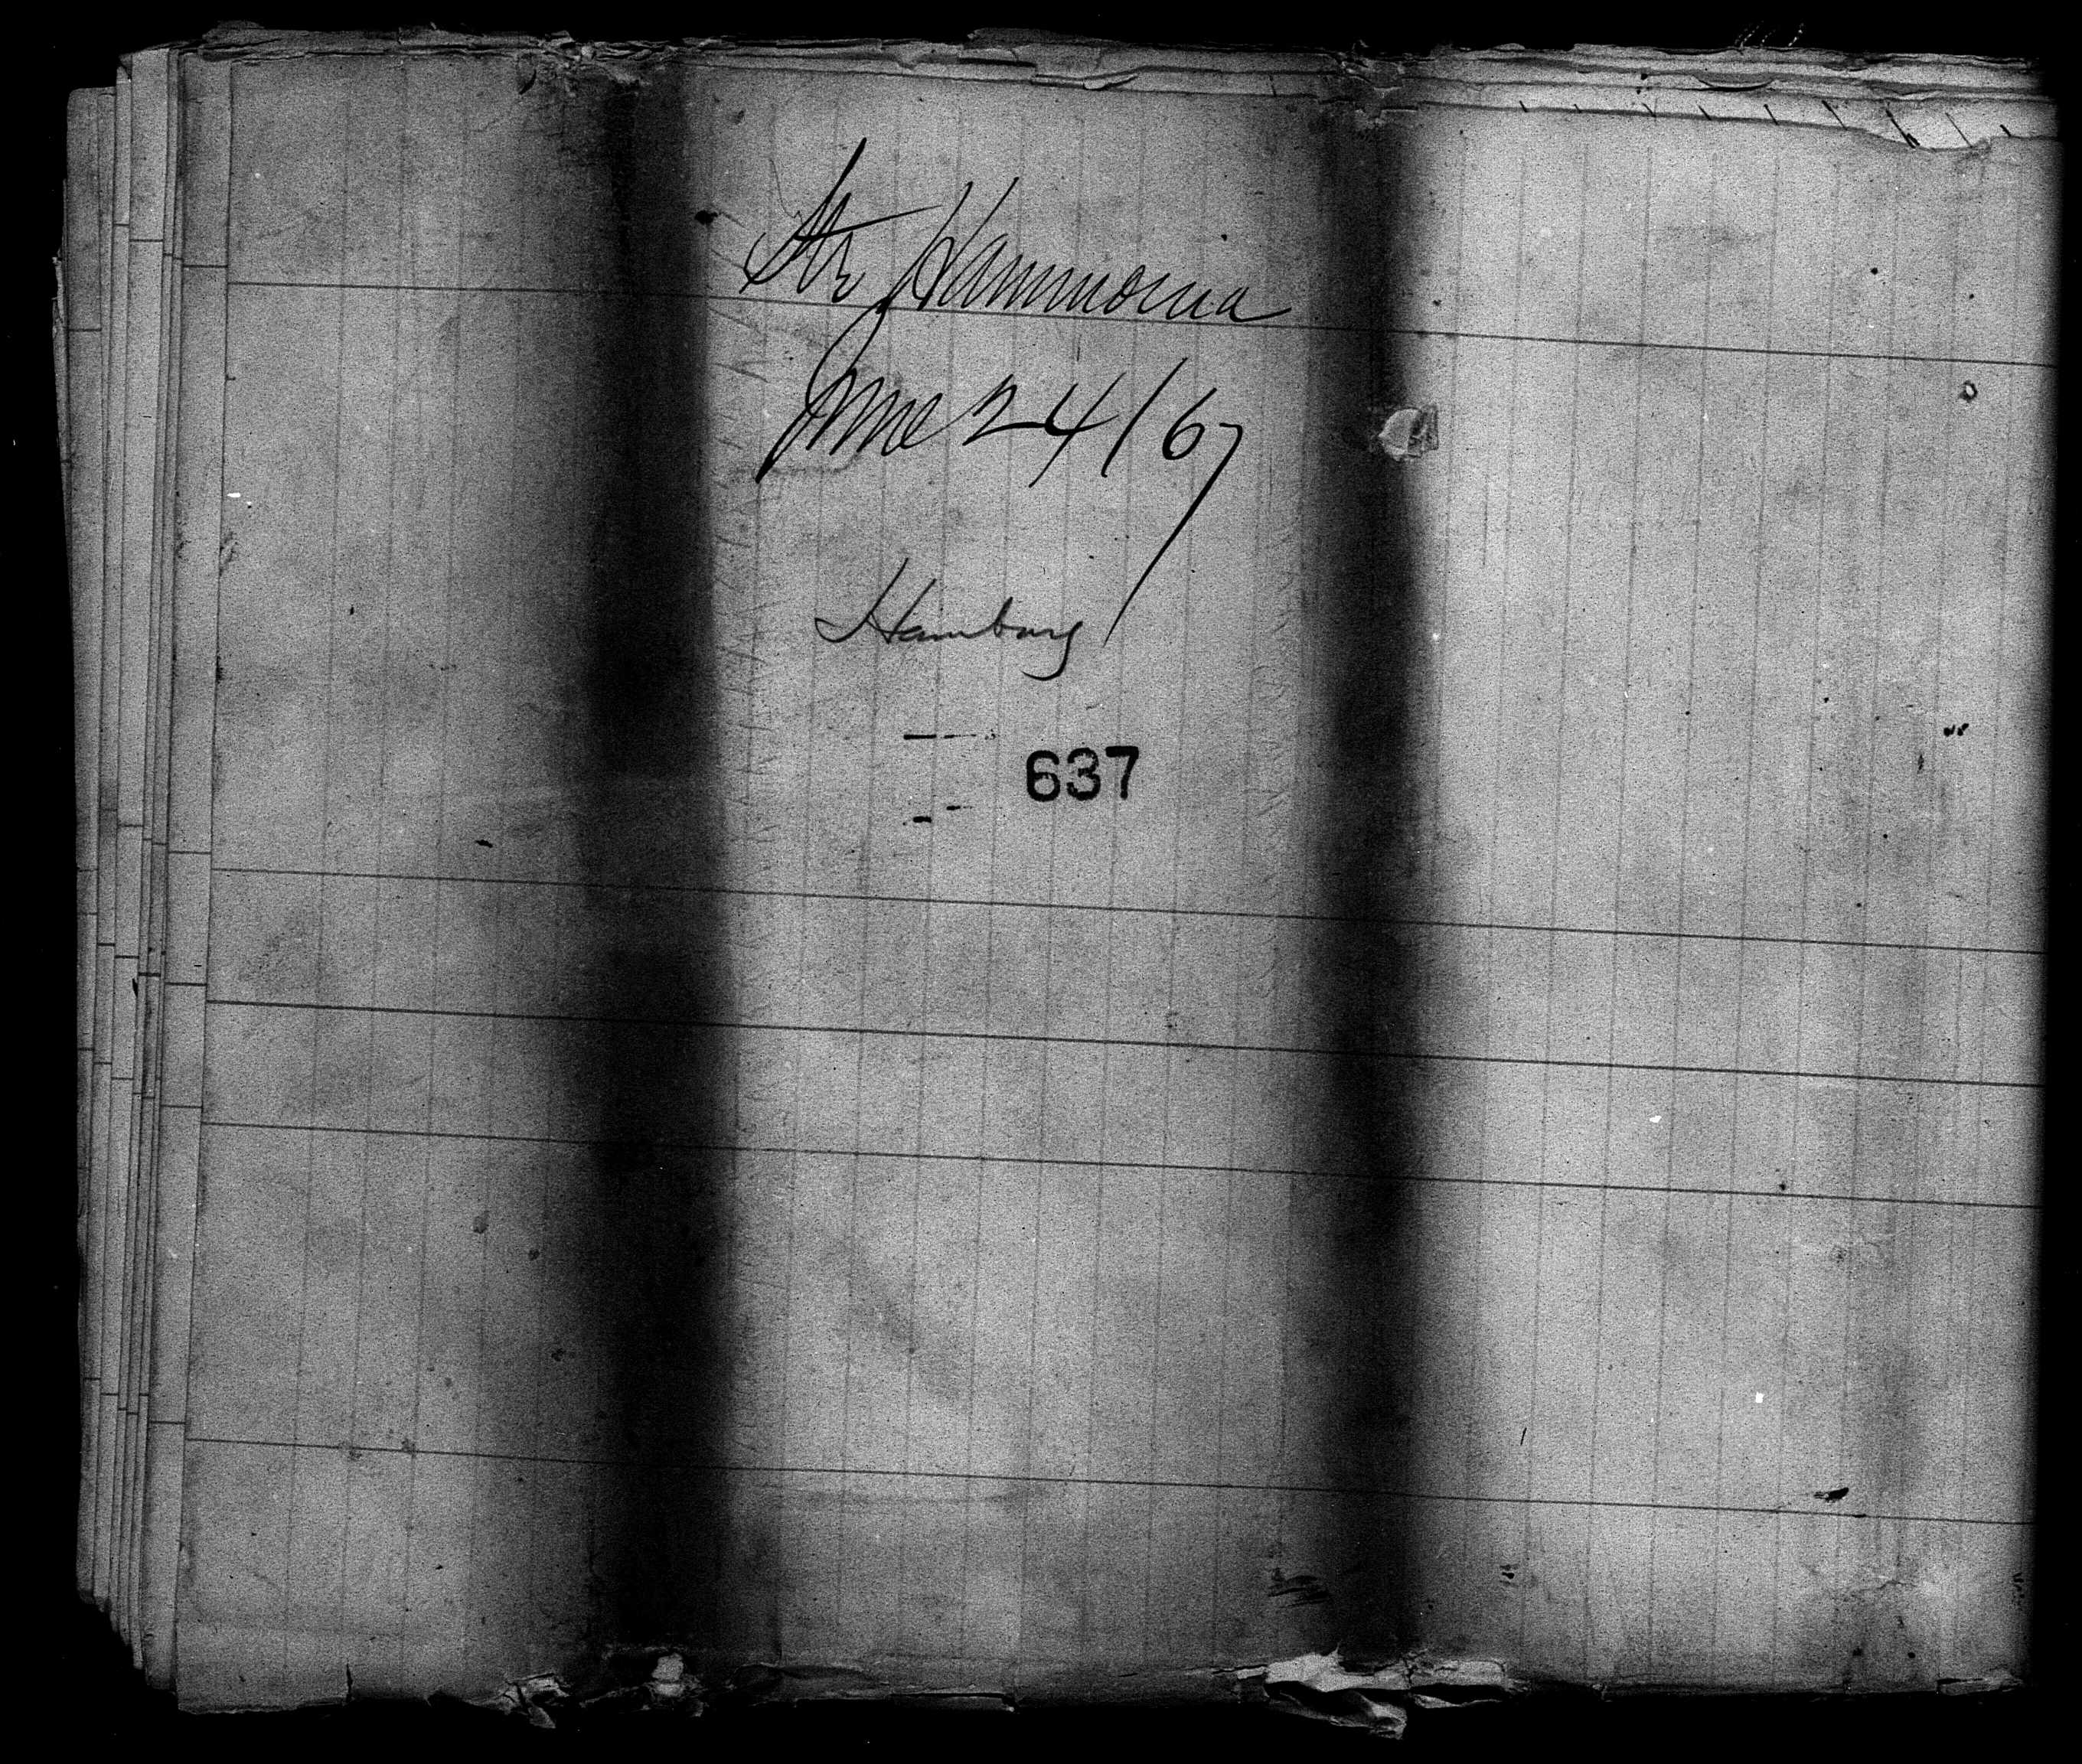 Str Hammonia
June 24/67
Hamburg
637